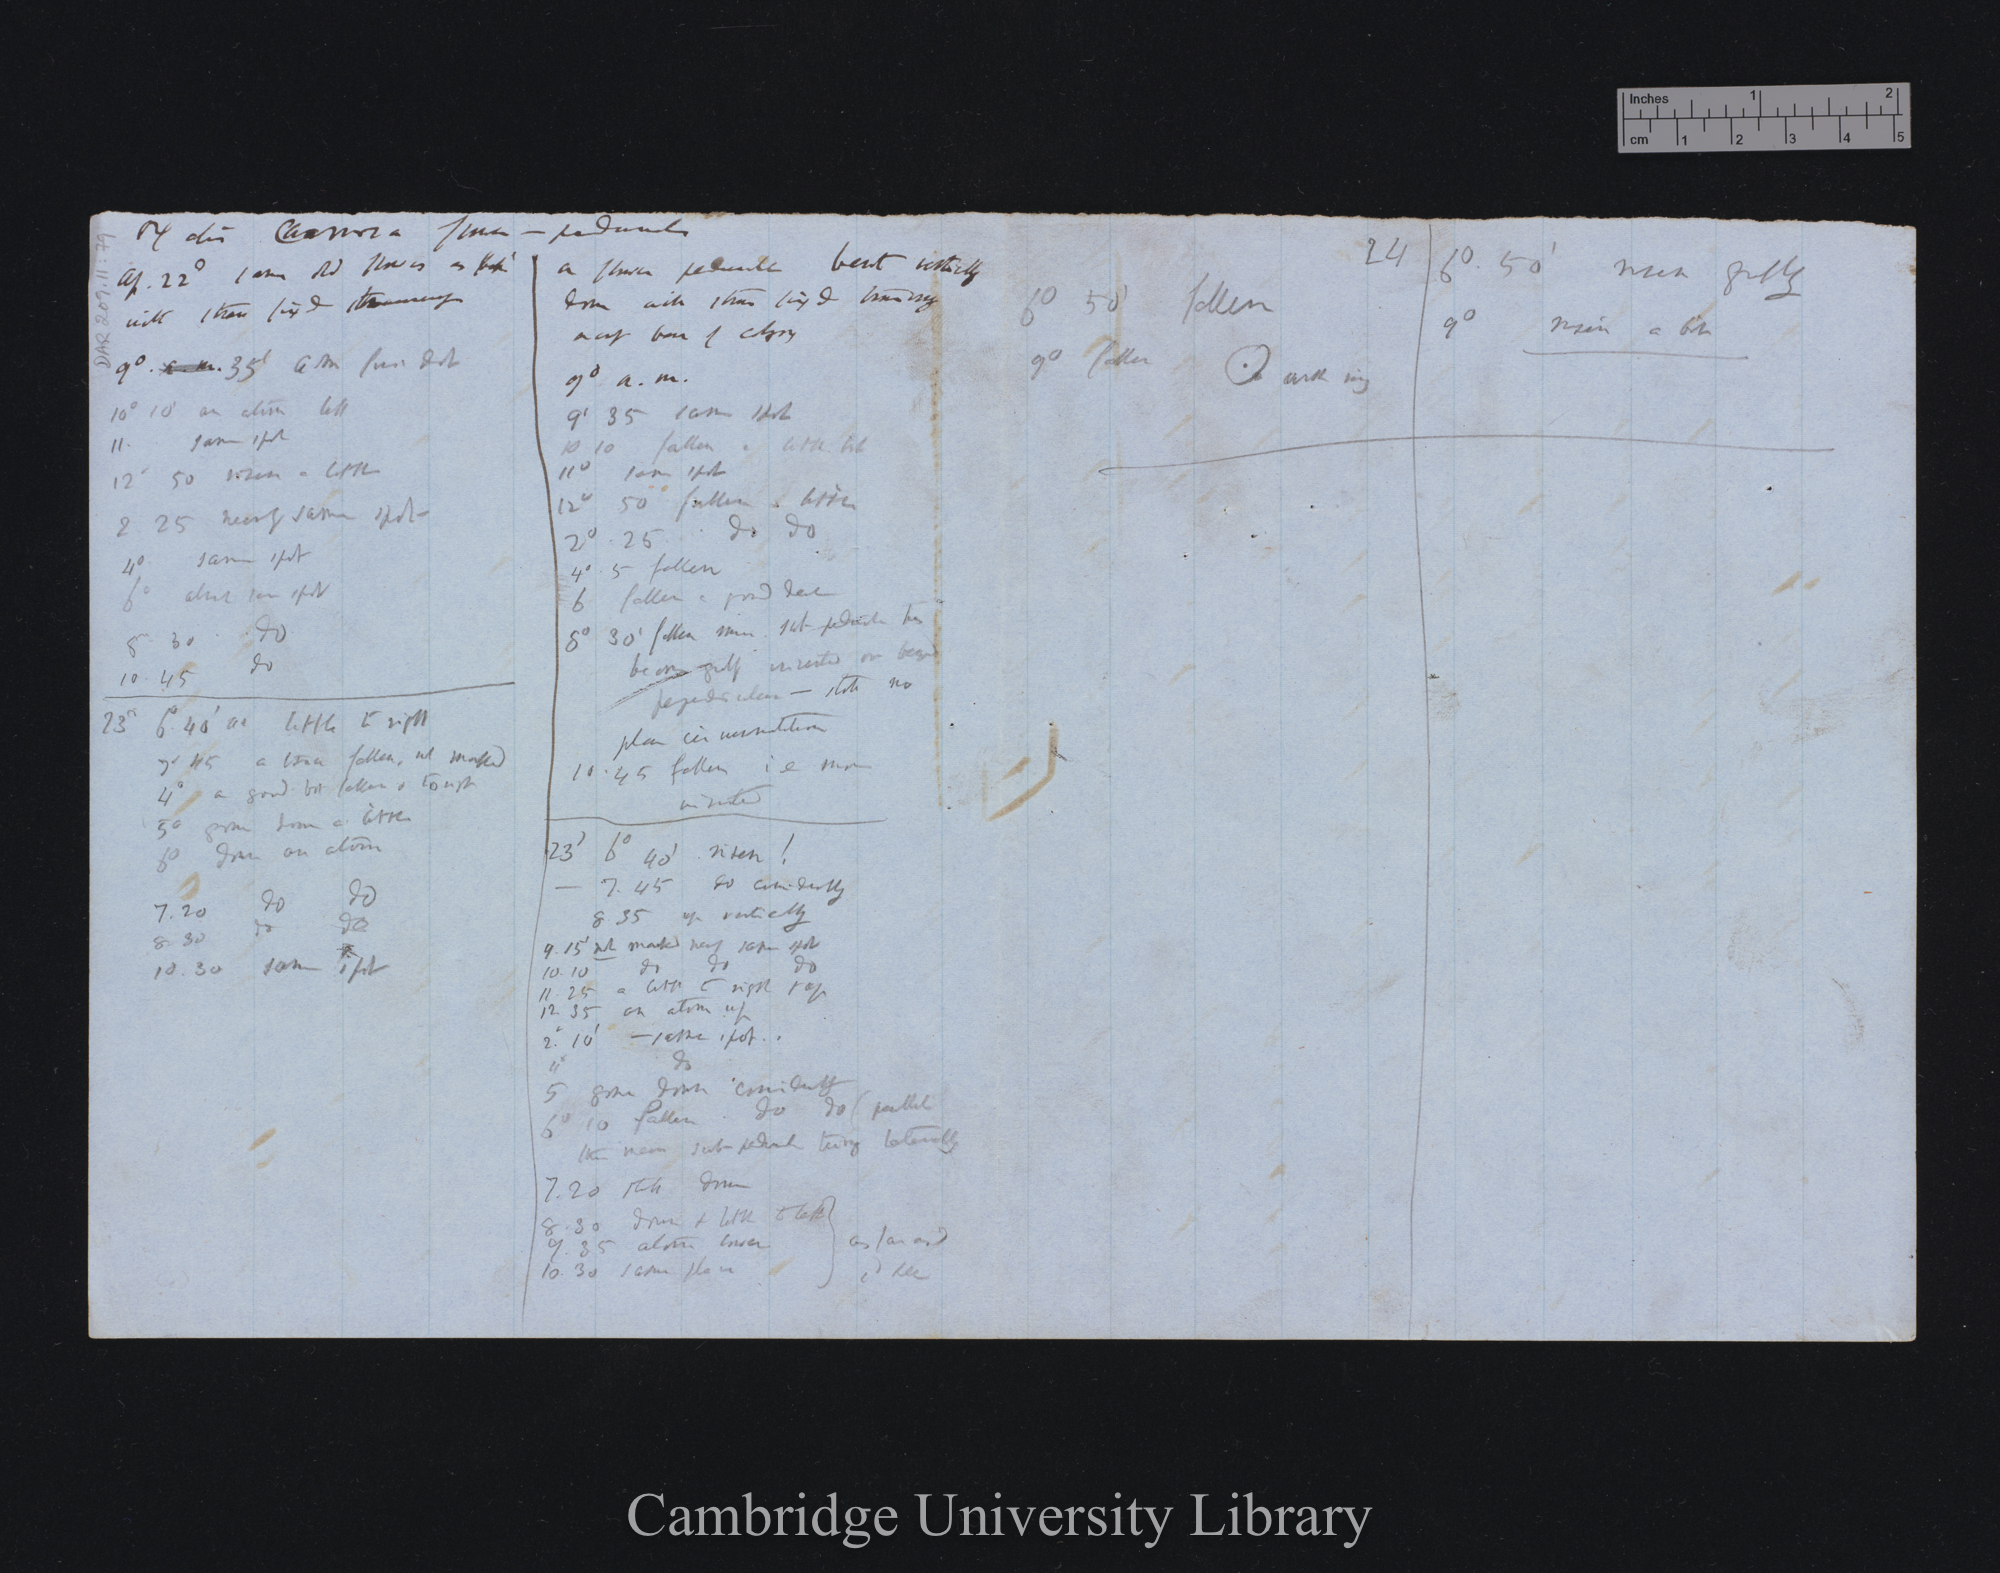 Oxalis carnosa flower-peduncle
Ap. 22° same old flower as
with straw fixed
9°. a.m. 35' a.m. first dot
10° 10' an atom left
11. same spot
12° 50 risen a little
2. 25 nearly same spot
4° same spot
6° about same spot
8 30 do
10. 45 do
23° 6° 40' am little to right
7° 45 fallen, not marked
4° a good bit fallen & to right
5° gone down a little
6° down an atom
7.20 do do
8.30 do do
10.30 same spot
a flower peduncle bent vertically
down with straw fixed
9° a.m.
9° 35 same spot
10 10 fallen a little bit
11° same spot
12° 50 fallen a little
2° .25 do do
4° .5 fallen
6 fallen a good deal
8° 30' fallen more. sub-peduncle has
become on beyond
perpendicular —
plain circumnutation
10.45 fallen i e more
23' 6° 40' risen!
— 7.45 do considerably
8 35 up vertically
9.15' not marked nearly same spot
10.10 do do do
11 25 a little to right & up
12 35 an atom up
2° 10' — same spot..
4° do
5 gone down considerably
6° 10 fallen do do (parallel
the main sub-peduncle being laterally
7.20 still down
8.30 down & little to left
9.35 atom lower
10.30 same place
as far as I
cd see
24
6° 50' fallen
9° fallen
with ring
6°. 50' risen greatly
9° risen a bit
DAR 209.11:79
Inches 1 2
cm 1 2 3 4 5
Cambridge University Library